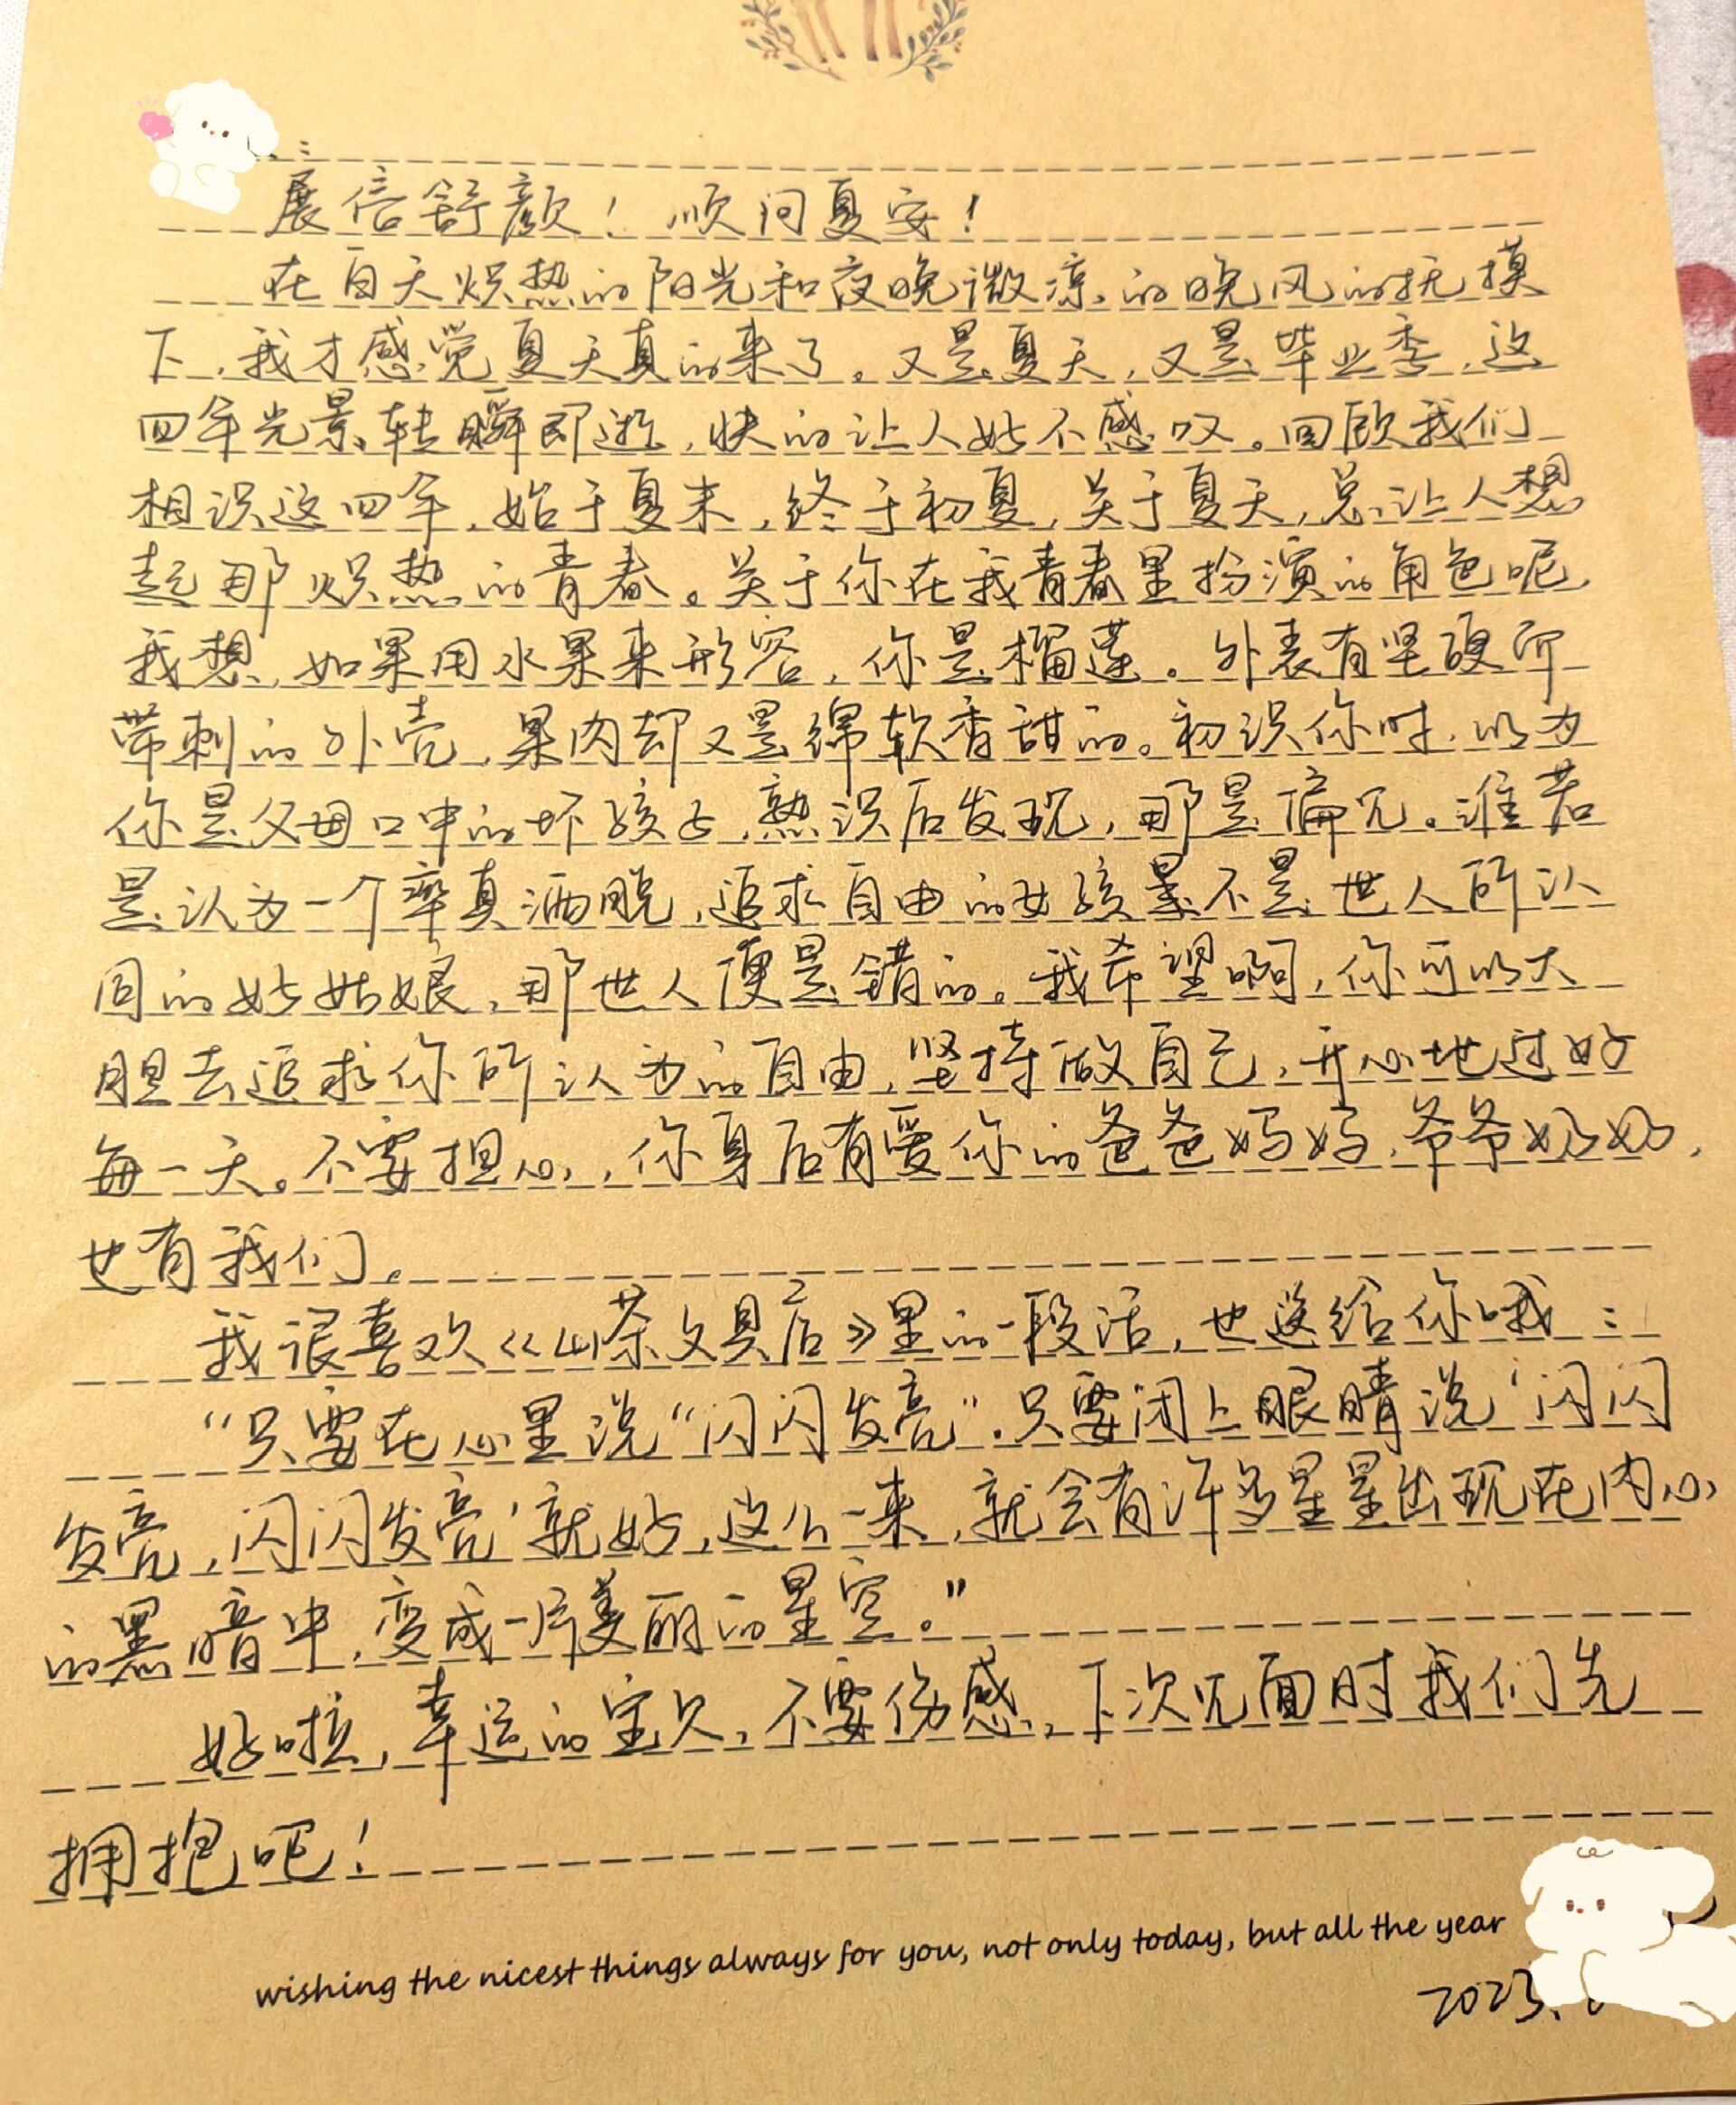 展信舒颜！顺问夏安！
在白天炽热的阳光和夜晚微凉的晚风的抚摸
下，我才感觉夏天真的来了。又是夏天，又是毕业季，这
四年光景转瞬即逝，快的让人好不感叹。回顾我们
相识这四年，始于夏末，终于初夏，关于夏天，总让人想
起那炽热的青春。关于你在我青春里扮演的角色呢，
我想，如果用水果来形容，你是榴莲。外表有坚硬所
带刺的外壳，果肉却又是绵软香甜的。初识你时，以为
你是父母口中的坏孩子，熟识后发现，那是偏见。谁若
是认为一个率真洒脱，追求自由的女孩不是世人所认
同的好姑娘，那世人便是错的。我希望啊，你可以大
胆去追求你所认为的自由，坚持做自己，开心地过好
每一天。不要担心，你身后有爱你的爸爸妈妈，爷爷奶奶，
也有我们。
我很喜欢《山茶文具店》里的一段话，也送给你哦：
“只要在心里说“闪闪发亮”，只要闭上眼睛说‘闪闪
发亮，闪闪发亮’就好，这么一来，就会有许多星星出现在内心
的黑暗中，变成一片美丽的星空。”
好啦，幸运的宝贝，不要伤感，下次见面时我们先
拥抱吧！
wishing the nicest things always for you, not only today, but all the year
2023.